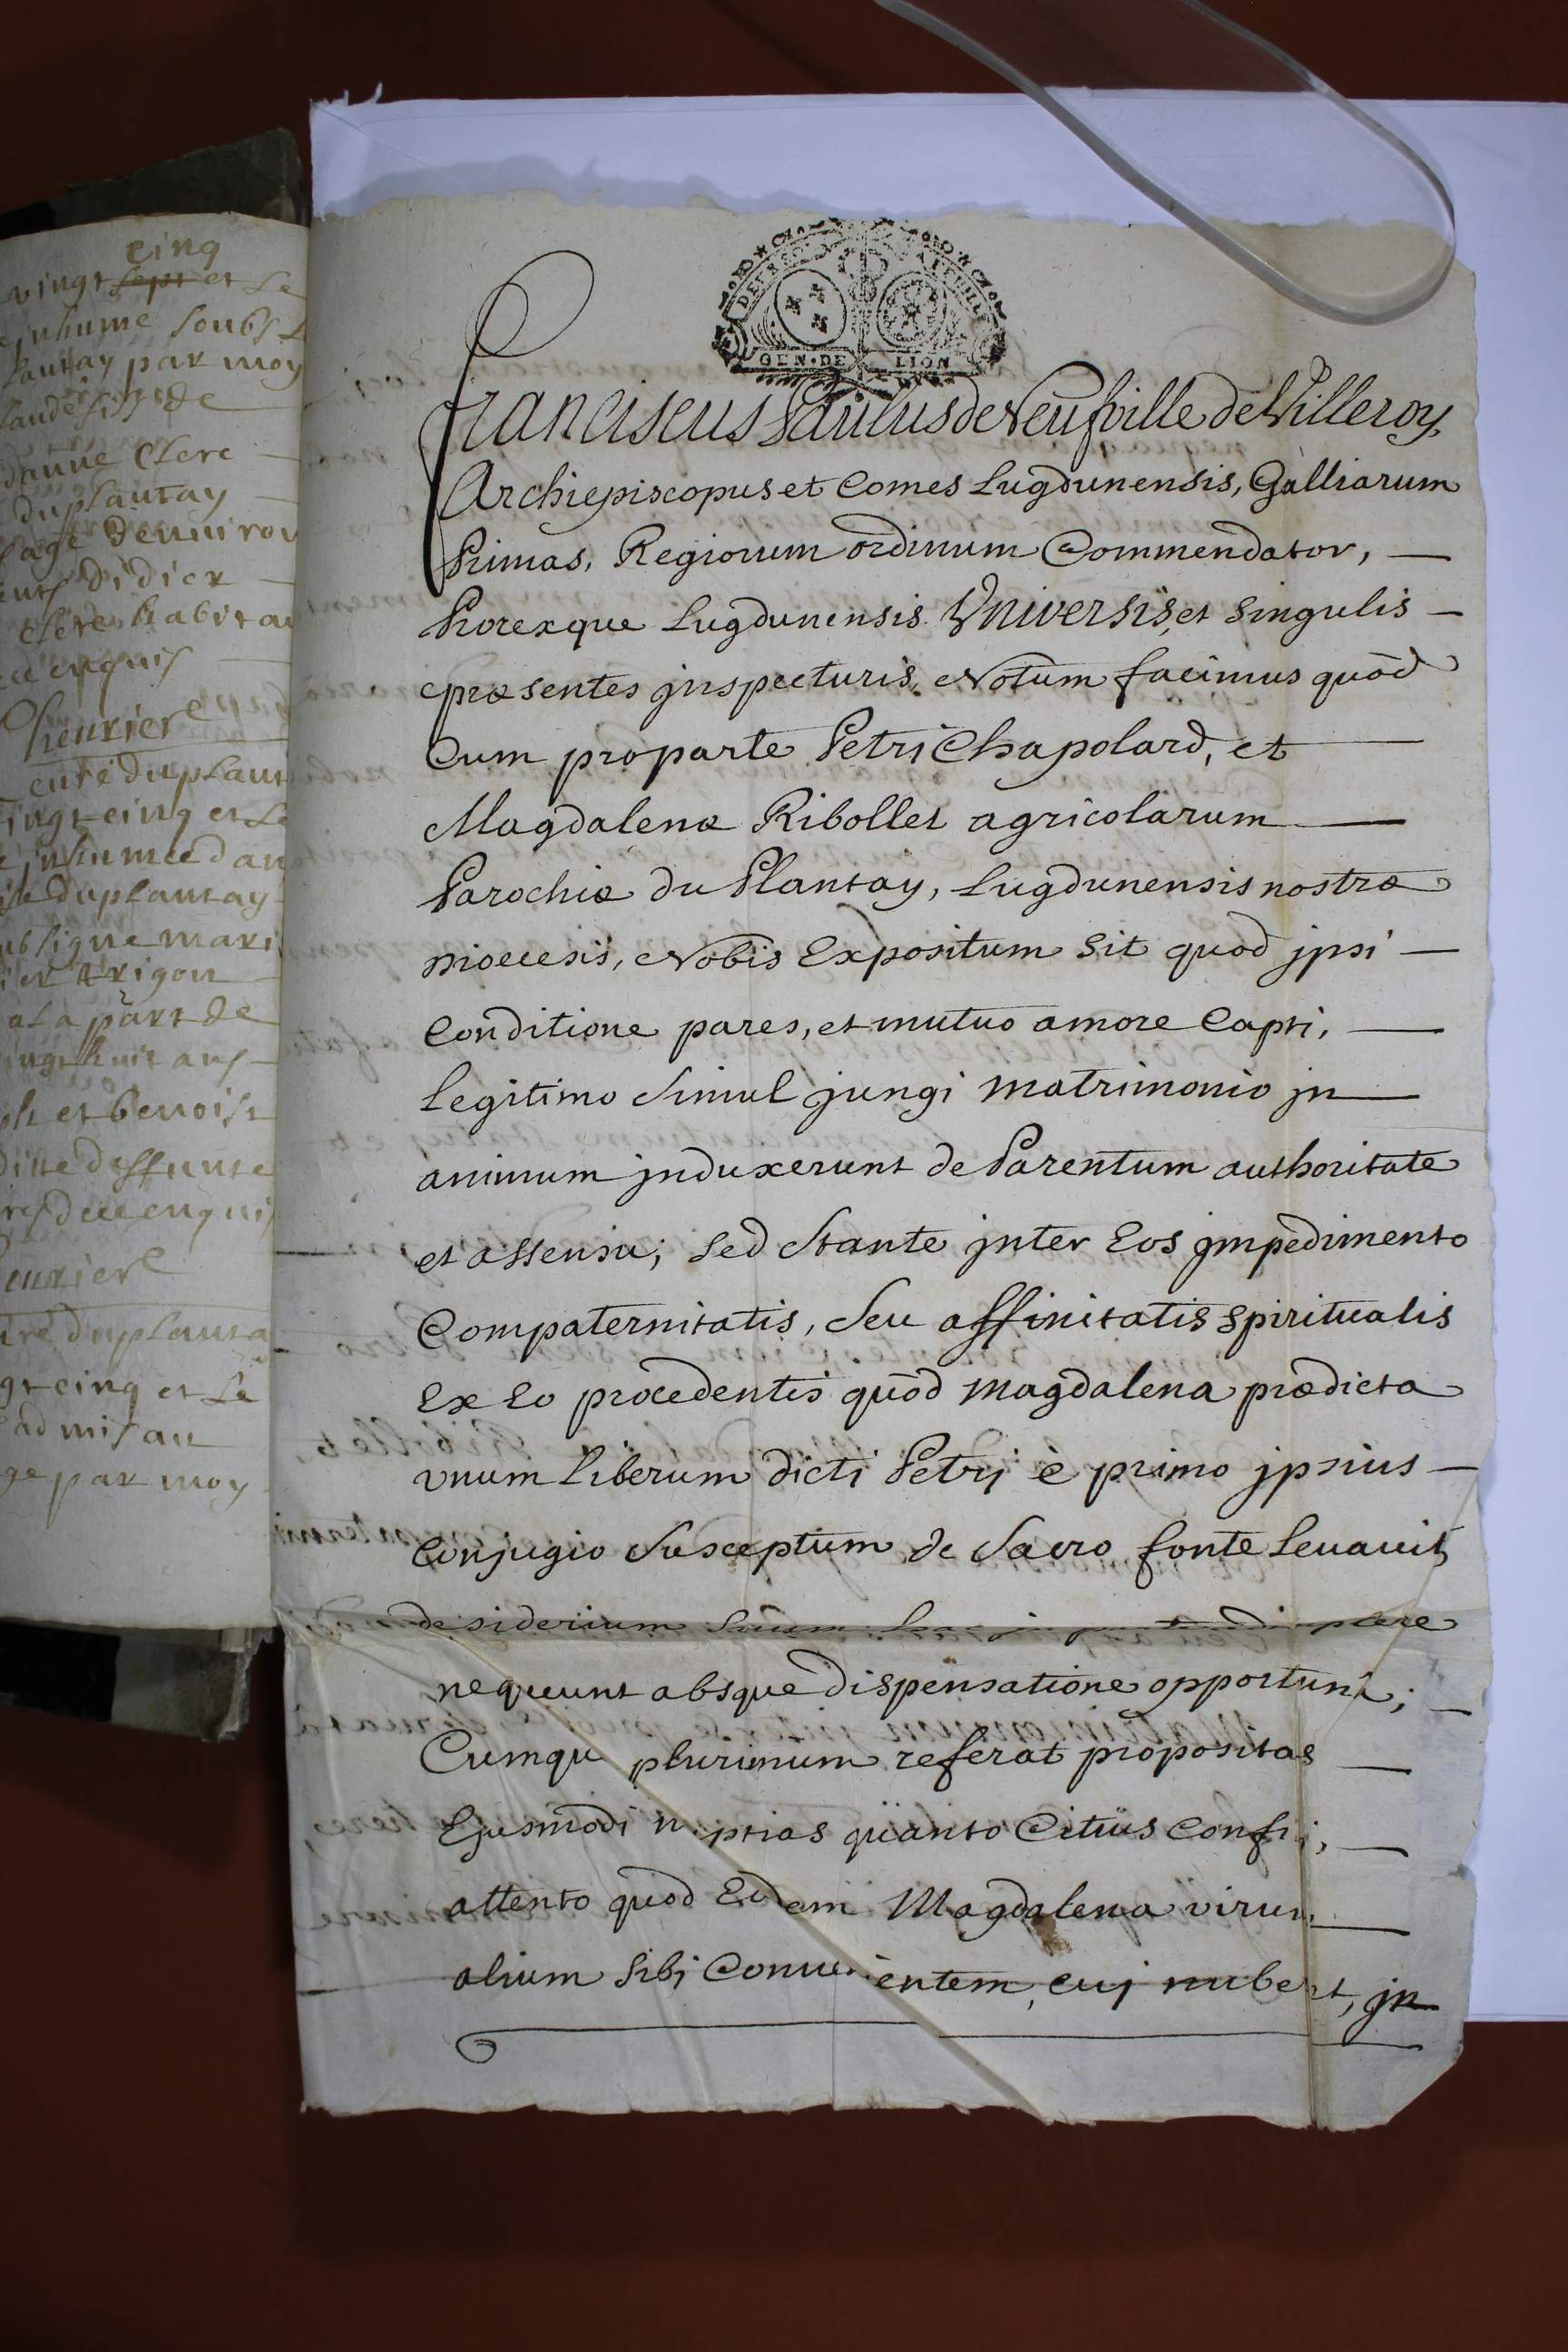 cinq
vingt sept et le
inhumé soubs
plantay par moy
danne clerc
du plantay
l'agé d'enuiron
Didier
clerc habitan
ce enquis
curé du plant
vingt cinq et le
inhumée dan
du plantay
a la part de
vingt huit ans
et benoist
ditte deffunte
de ce enquis
curé du planta
gt cinq et le
admis au
ge par moy
GEN·DE LION
Franciscus Paulus de Neufville de Villeroy,
Archiepiscopus et Comes Lugdunensis, Galliarum
Primas, Regiorum ordinum Commendator, —
Prorexque Lugdunensis. Universis, et singulis —
præsentes jnspecturis, Notum facimus quòd
Cum pro parte Petri Chapolard, et —
Magdalenæ Ribollet agricolarum —
Parochiæ du Plantay, Lugdunensis nostræ
Diœcesis, Nobis Expositum sit quod jpsi —
Conditione pares, et mutuo amore Capti, —
Legitimo simul jungi matrimonio jn —
animum jnduxerunt de Parentum authoritate
et assensu; sed stante jnter Eos jmpedimento
Compaternitatis, seu affinitatis spiritualis
Ex Eo procedentis quòd Magdalena prædicta
vnum Liberum dicti Petrj è primo jpsius —
Conjugio susceptum de sacro fonte leuauit,
desiderium suum hac jn parte adimplere
nequeunt absque dispensatione opportunâ; —
Cumque plurimum referat propositas —
Ejusmodi nuptias quanto Citius Confici, —
attento quòd Eadem Magdalena virum —
alium sibj Conuenientem, cuj nuberet, jn